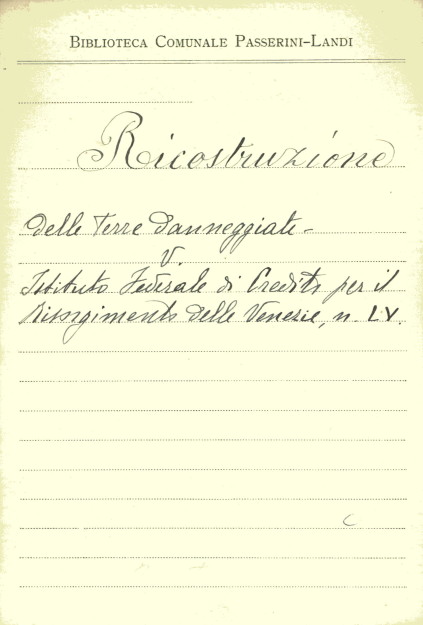 BIBLIOTECA COMUNALE PASSERINI-LANDI
Ricostruzione
delle Terre danneggiate -
V.
Istituto Federale di Credito per il
Risorgimento delle Venezie, n. LV.